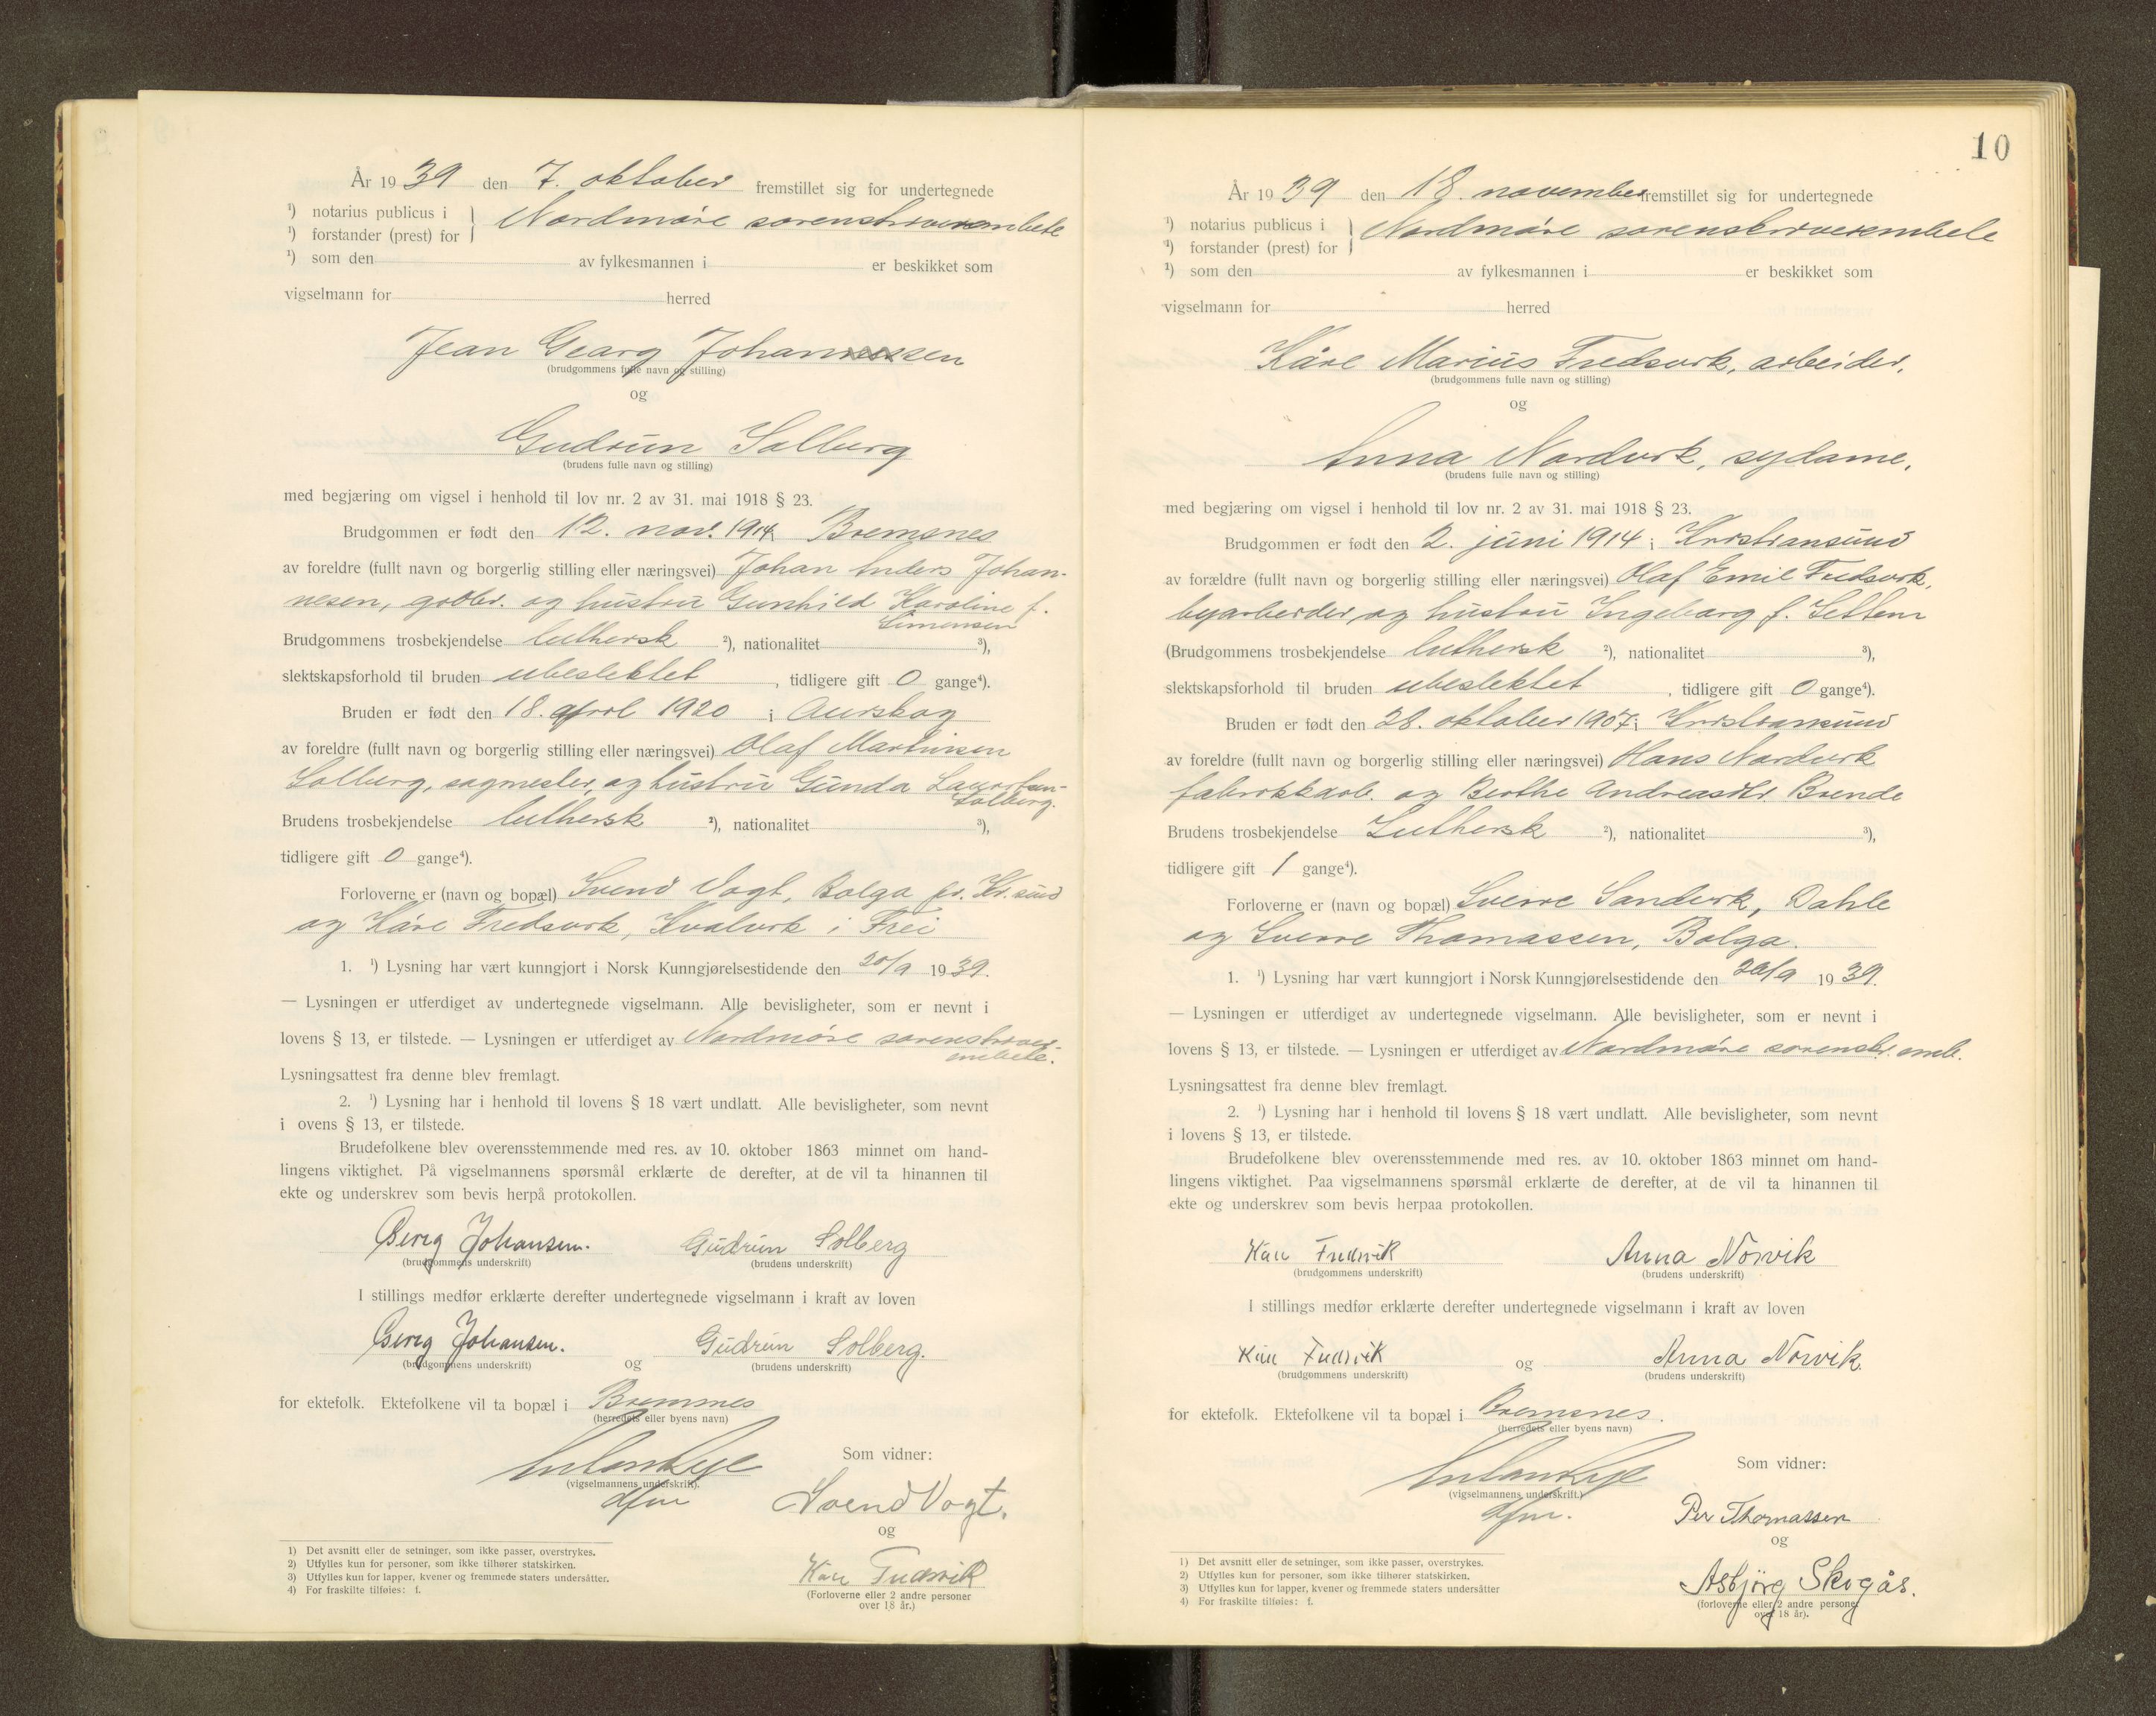 År 19 39 den 7. oktober fremstillet sig for undertegnede
¹) notarius publicus i } Nordmøre sorenskriverembete
¹) forstander (prest) for
¹) som den av fylkesmannen i er beskikket som
vigselmann for herred
Jean Georg Johannessen
(brudgommens fulle navn og stilling)
og
Gudrun Solberg
(brudens fulle navn og stilling)
med begjæring om vigsel i henhold til lov nr. 2 av 31. mai 1918 § 23.
Brudgommen er født den 12. nov. 1914 Bremsnes
av foreldre (fullt navn og borgerlig stilling eller næringsvei) Johan Anders Johan-
nesen, grdbr. og hustru Gunhild Karoline f.
Simensen
Brudgommens trosbekjendelse luthersk ²), nationalitet ³),
slektskapsforhold til bruden ubeslektet , tidligere gift 0 gange⁴).
Bruden er født den 18. april 1920 i Aurskog
av foreldre (fullt navn og borgerlig stilling eller næringsvei) Olaf Martinsen
Solberg, sagmester, og hustru Gunda
Solberg.
Brudens trosbekjendelse luthersk ²), nationalitet ³),
tidligere gift 0 gange⁴).
Forloverne er (navn og bopæl) Svend Vogt, Bolga pr. Kr.sund
og Kåre Fredsvik, Kvalvik i Frei
1. ¹) Lysning har vært kunngjort i Norsk Kunngjørelsestidende den 20/9 1939.
— Lysningen er utferdiget av undertegnede vigselmann. Alle bevisligheter, som er nevnt i
lovens § 13, er tilstede. — Lysningen er utferdiget av Nordmøre sorenskriver-
embete.
Lysningsattest fra denne blev fremlagt.
2. ¹) Lysning har i henhold til lovens § 18 vært undlatt. Alle bevisligheter, som nevnt
i ovens § 13, er tilstede.
Brudefolkene blev overensstemmende med res. av 10. oktober 1863 minnet om hand-
lingens viktighet. På vigselmannens spørsmål erklærte de derefter, at de vil ta hinannen til
ekte og underskrev som bevis herpå protokollen.
Georg Johansen. Gudrun Solberg
(brudgommens underskrift) (brudens underskrift)
I stillings medfør erklærte derefter undertegnede vigselmann i kraft av loven
Georg Johansen. og Gudrun Solberg.
(brudgommens underskrift) (brudens underskrift)
for ektefolk. Ektefolkene vil ta bopæl i Bremsnes
(herredets eller byens navn)
Som vidner:
(vigselmannens underskrift).
dfm
Svend Vogt.
og
Kåre Fredsvik
(Forloverne eller 2 andre personer
over 18 år.)
1) Det avsnitt eller de setninger, som ikke passer, overstrykes.
2) Utfylles kun for personer, som ikke tilhører statskirken.
3) Utfylles kun for lapper, kvener og fremmede staters undersåtter.
4) For fraskilte tilføies: f.
10
År 19 39 den 18. november fremstillet sig for undertegnede
¹) notarius publicus i } Nordmøre sorenskriverembete
¹) forstander (prest) for
¹) som den av fylkesmannen i er beskikket som
vigselmann for herred
Kåre Marius Fredsvik, arbeider,
(brudgommens fulle navn og stilling)
og
Anna Nordvik, sydame,
(brudens fulle navn og stilling)
med begjæring om vigsel i henhold til lov nr. 2 av 31. mai 1918 § 23.
Brudgommen er født den 2. juni 1914 i Kristiansund
av forældre (fullt navn og borgerlig stilling eller næringsvei) Olaf Emil Fredsvik,
byarbeider, og hustru Ingeborg f. Settem
(Brudgommens trosbekjendelse luthersk ²), nationalitet ³),
slektskapsforhold til bruden ubeslektet , tidligere gift 0 gange⁴).
Bruden er født den 28. oktober 1907 i Kristiansund
av foreldre (fullt navn og borgerlig stilling eller næringsvei) Hans Nordvik
fabrikkarb. og Berthe Andreasdtr. Brende
Brudens trosbekjendelse Luthersk ²), nationalitet ³),
tidligere gift 1 gange⁴).
Forloverne er (navn og bopæl) Sverre Sandvik, Dahle
og Sverre Thomassen, Bolga.
1. ¹) Lysning har vært kunngjort i Norsk Kunngjørelsestidende den 20/9 1939.
— Lysningen er utferdiget av undertegnede vigselmann. Alle bevisligheter, som er nevnt i
lovens § 13, er tilstede. — Lysningen er utferdiget av Nordmøre sorenskr. emb.
Lysningsattest fra denne blev fremlagt.
2. ¹) Lysning har i henhold til lovens § 18 vært undlatt. Alle bevisligheter, som nevnt
i lovens § 13, er tilstede.
Brudefolkene blev overensstemmende med res. av 10. oktober 1863 minnet om hand-
lingens viktighet. Paa vigselmannens spørsmål erklærte de derefter, at de vil ta hinannen til
ekte og underskrev som bevis herpaa protokollen.
Kåre Fredsvik Anna Norvik
(brudgommens underskrift) (brudens underskrift)
I stillings medfør erklærte derefter undertegnede vigselmann i kraft av loven
Kåre Fredsvik og Anna Norvik.
(brudgommens underskrift) (brudens underskrift)
for ektefolk. Ektefolkene vil ta bopæl i Bremsnes.
(herredets eller byens navn)
Som vidner:
(vigselmannens underskrift.)
dfm.
Per Thomassen
og
Asbjørg Skogås.
(forloverne eller 2 andre personer
over 18 år).
1) Det avsnitt eller de setninger, som ikke passer, overstrykes.
2) Utfylles kun for personer, som ikke tilhører statskirken.
3) Utfylles kun for lapper, kvener og fremmede staters undersåtter
4) For fraskilte tilføies: f.